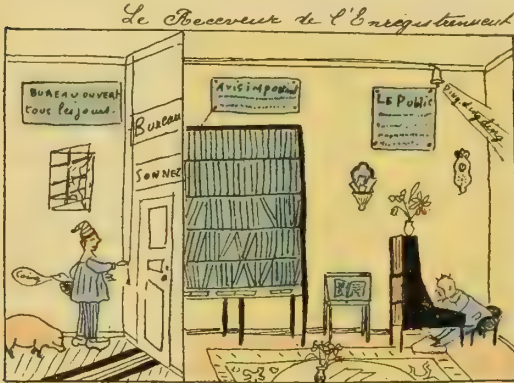 Le Receveur de l'Enregistrement
BUREAU OUVERT
tous les jours.
Bureau
SONNEZ
AVIS IMPORTANT
LE Public
Ding-ding-ding